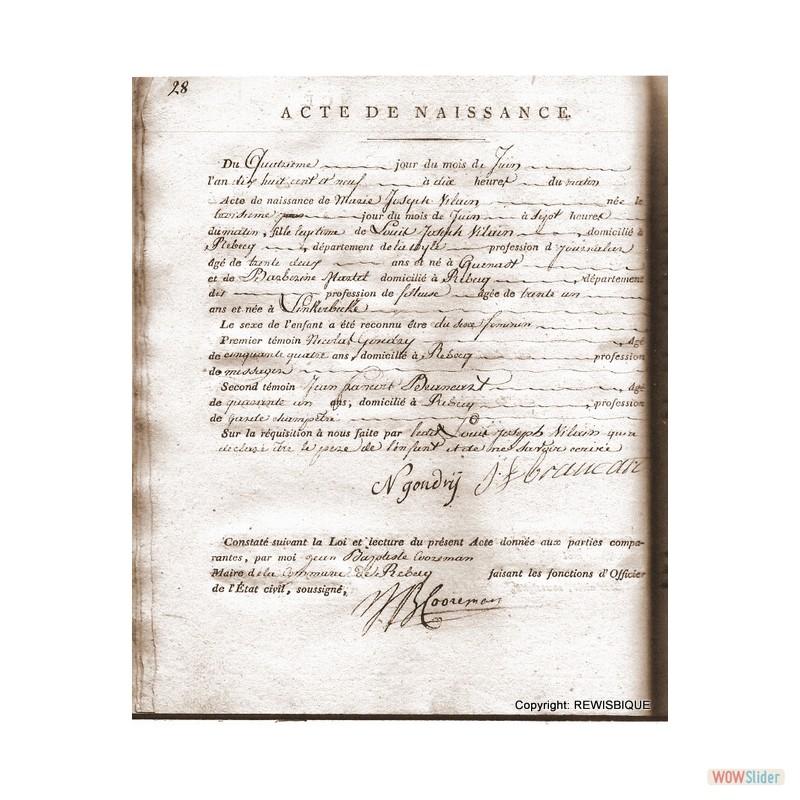 28
ACTE DE NAISSANCE.
Du Quatrieme jour du mois de Juin
l'an dix huit cent et neuf à dix heures du matin
Acte de naissance de Marie Joseph Vilain née le
troisieme jour du mois de Juin à sept heures
du matin, fille legitime de Louis Joseph Vilain, domicilié à
Rebecq, département de la Dyle profession d journalier
âgé de trente deux ans et né à Quenast
et de Barbezine Martel domicilié à Rebecq, département
dit profession de fileuse âgée de trente un
ans et née à Linkerbeke
Le sexe de l'enfant a été reconnu être du sexe feminin
Premier témoin Nicolas Gondry, âgé
de cinquante quatre ans, domicilié à Rebecq profession
de messager
Second témoin Jean Brančart, âgé
de quarante un ans, domicilié à Rebecq, profession
de garde champetre
Sur la réquisition à nous faite par Louis Joseph Vilain qui a
declaré être le pere de l'enfant et de ne savoir écrire
N gondrÿ J f brancart
Constaté suivant la Loi et lecture du présent Acte donnée aux parties compa-
rantes, par moi jean Baptiste Cooreman
Maire de la Commune de Rebecq faisant les fonctions d'Officier
de l'État civil, soussigné,
JB Cooreman
Copyright: REWISBIQUE
WOWSlider